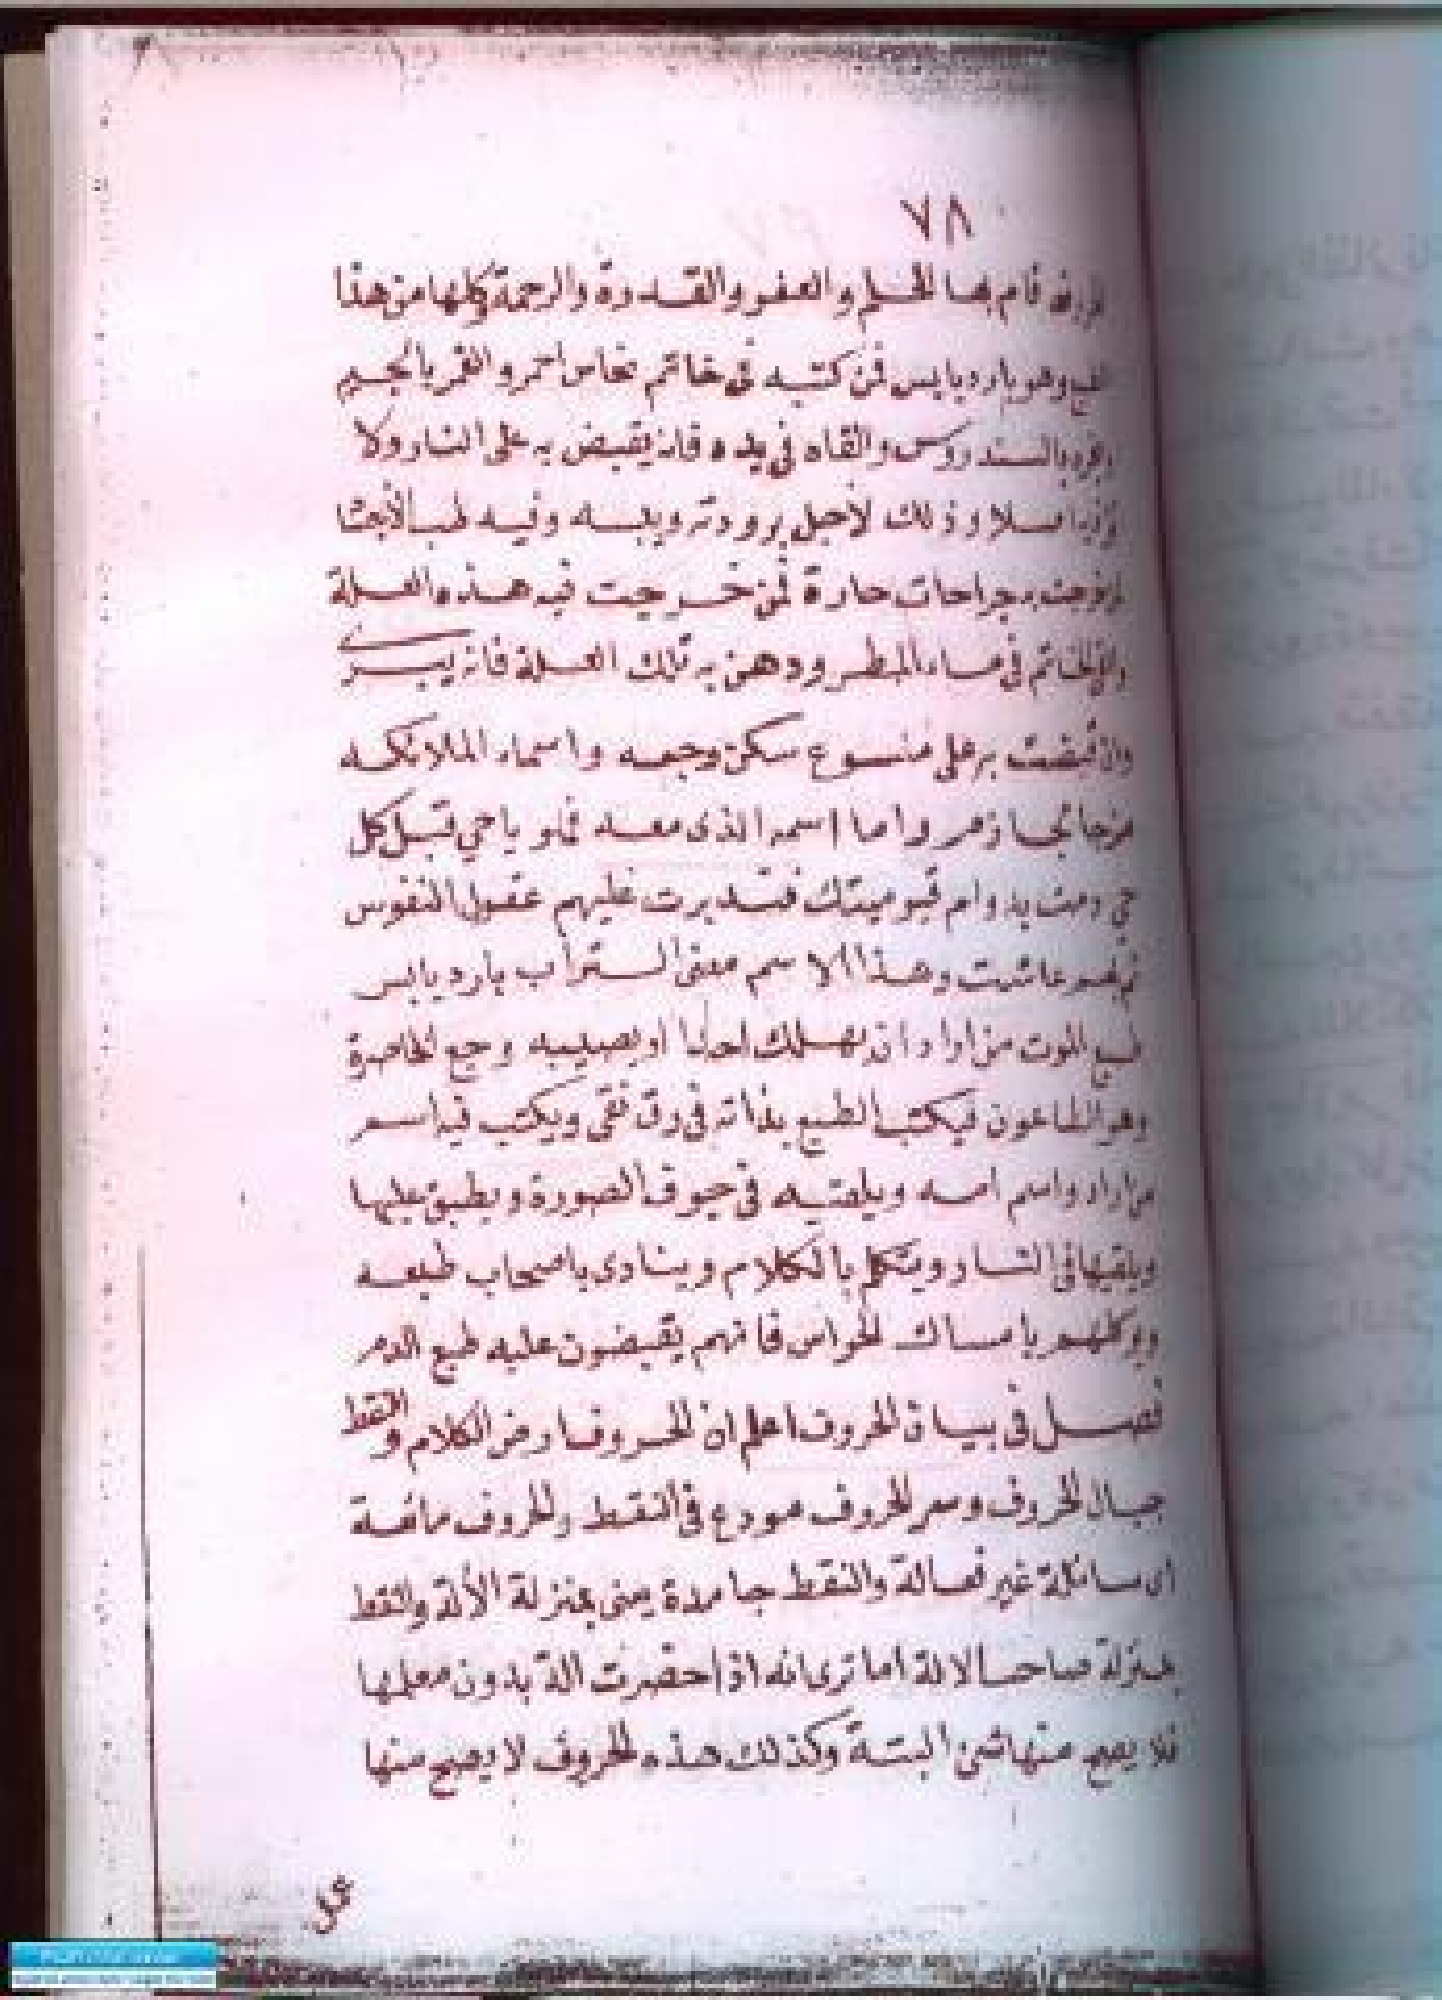 ٧٨
قام بها الحلم والعفو والقدرة والرحمة وكلها من هذا
وهو بارد يابس فمن كتبه في خاتم نحاس احمر والقمر بالجسيم
بالسندروس والقاه في يده فانه يقبض به على النار ولا
وذلك لأجل برودته ويبسه وفيه طب
به جراحات حارة فمن خرجت فيه هذه العلة
والقى الخاتم في ماء المطر ودهن به تلك العلة فانه يبرى
وان قبضت به على منسوع سكن وجعه واسماء الملائكه
واما اسمه الذى معه فهو يا حي قبل كل
حي دمت بدوام قيوميتك فتدبرت عليهم عقول النفوس
وهذا الاسم معنى التراب بارد يابس
طبع الموت من اراد ان يهلك احدا او يصيبه وجع الخاصرة
وهو الطاعون فيكتب الطبع بذاته في رق نقى ويكتب فيه اسم
من اراد واسم امه ويلقيه في جوف الصورة ويطبق عليها
ويلقيها في النار ويتكلم بالكلام وينادى باصحاب طبعه
ويوكلهم بامساك الحواس فانهم يقبضون عليه طبع الدم
فصل في بيان الحروف اعلم ان الحروف ارض الكلام والنقط
جبال الحروف وسر الحروف مودع في النقط والحروف مائعة
اى سائلة غير فعالة والنقط جامدة يعنى بمنزلة الألة والنقط
بمنزلة صاحب الالة اما ترى انه اذا حضرت الة بدون معلمها
فلا يصح منها شئ البتة وكذلك هذه الحروف لا يصح منها
عمل